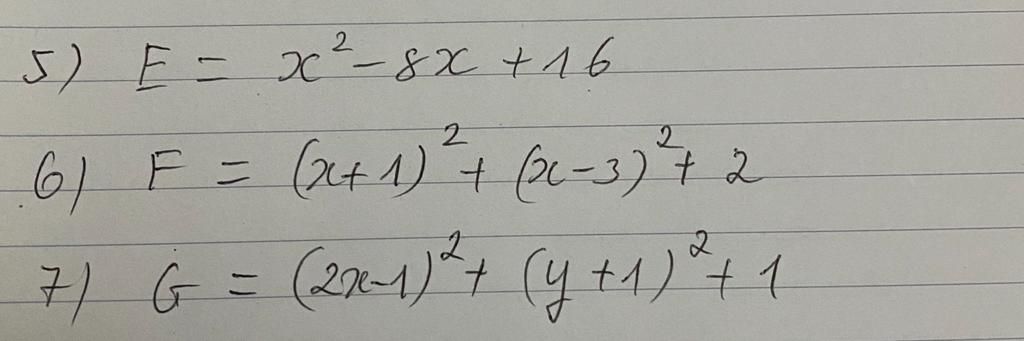 5) E = x² - 8x + 16
6) F = (x+1)² + (x-3)² + 2
7) G = (2x-1)² + (y+1)² + 1